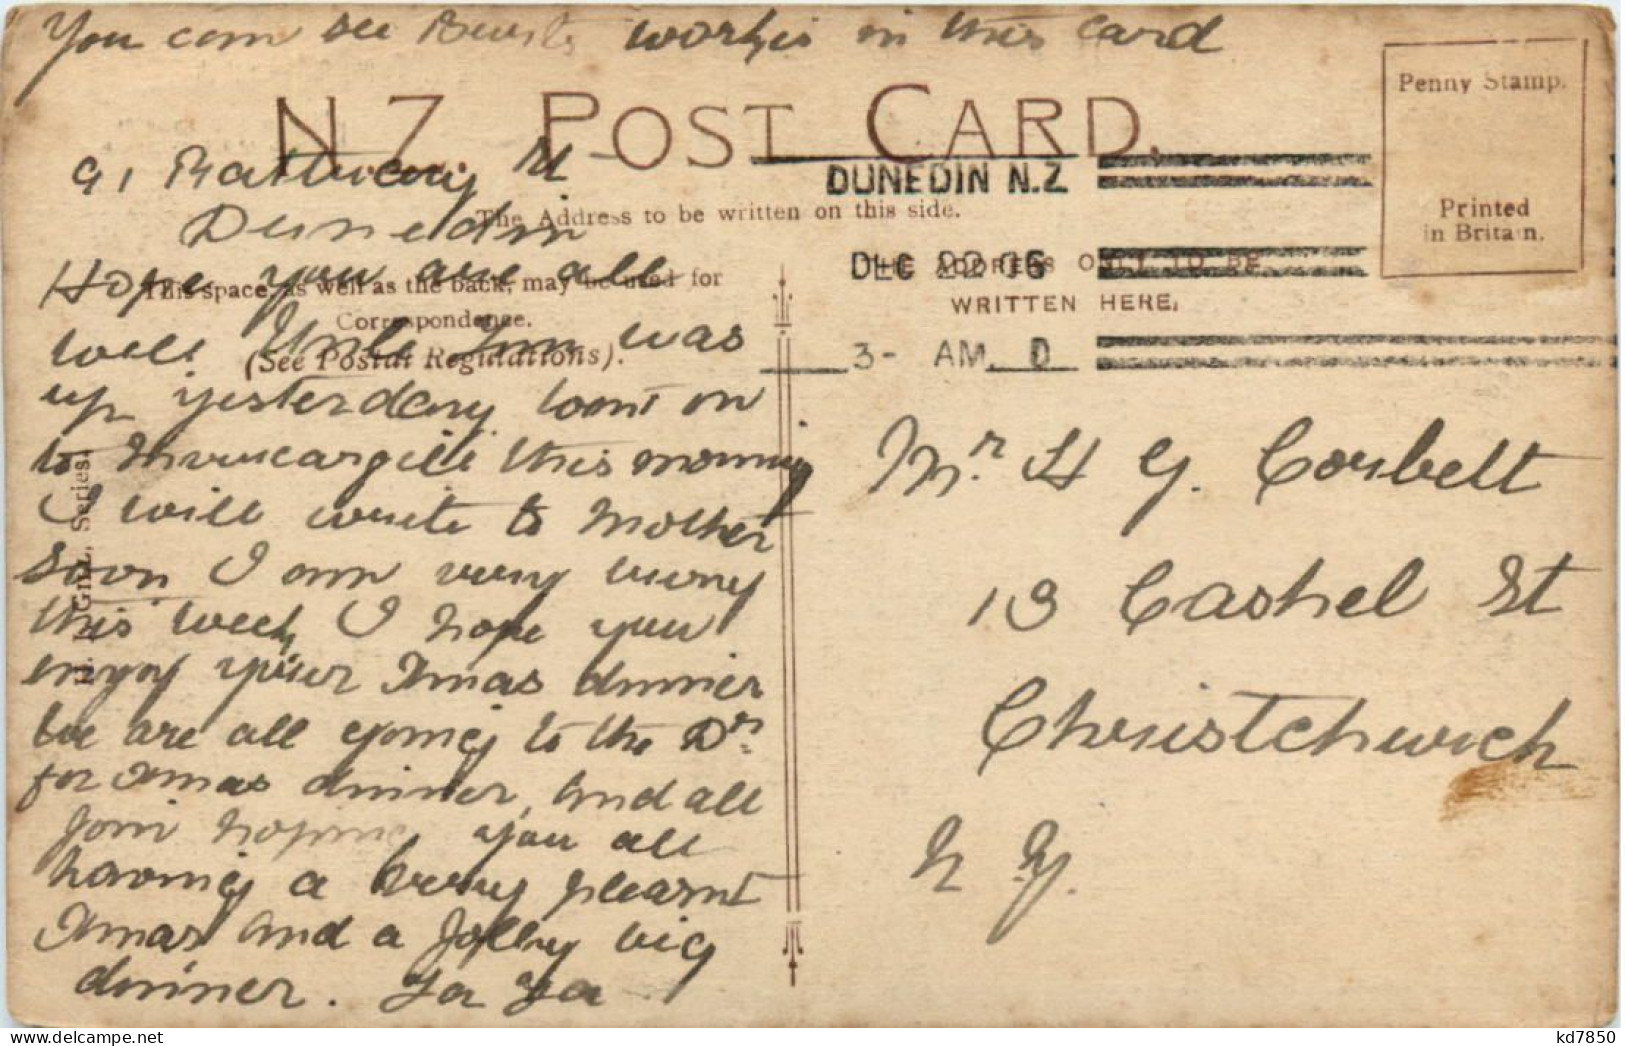 You can see works in this card
N Z POST CARD.
Penny Stamp.
Printed
in Britain.
91 Rattray St
Dunedin
DUNEDIN N.Z
The Address to be written on this side.
DEC 22 06
THE ADDRESS ONLY TO BE
WRITTEN HERE.
3- AM D
This space, as well as the back, may be used for
Correspondence.
(See Postal Regulations).
Hope you are all
well Uncle Jim was
up yesterday went on
to Invercargill this morning
I will write to Mother
soon I am very busy
this week I hope you
enjoy your Xmas dinner
We are all going to the Drs
for Xmas dinner, and all
join hoping you all
having a very pleasant
Xmas and a Jolly big
dinner. Ta Ta
Series.
Mr. H G. Corbett
13 Cashel St
Christchurch
N Z.
kd7850